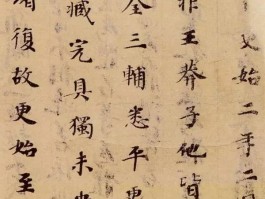 始二年二
非王莽子他皆
全三輔悉平更
臧完具獨未央
堵復故更始至